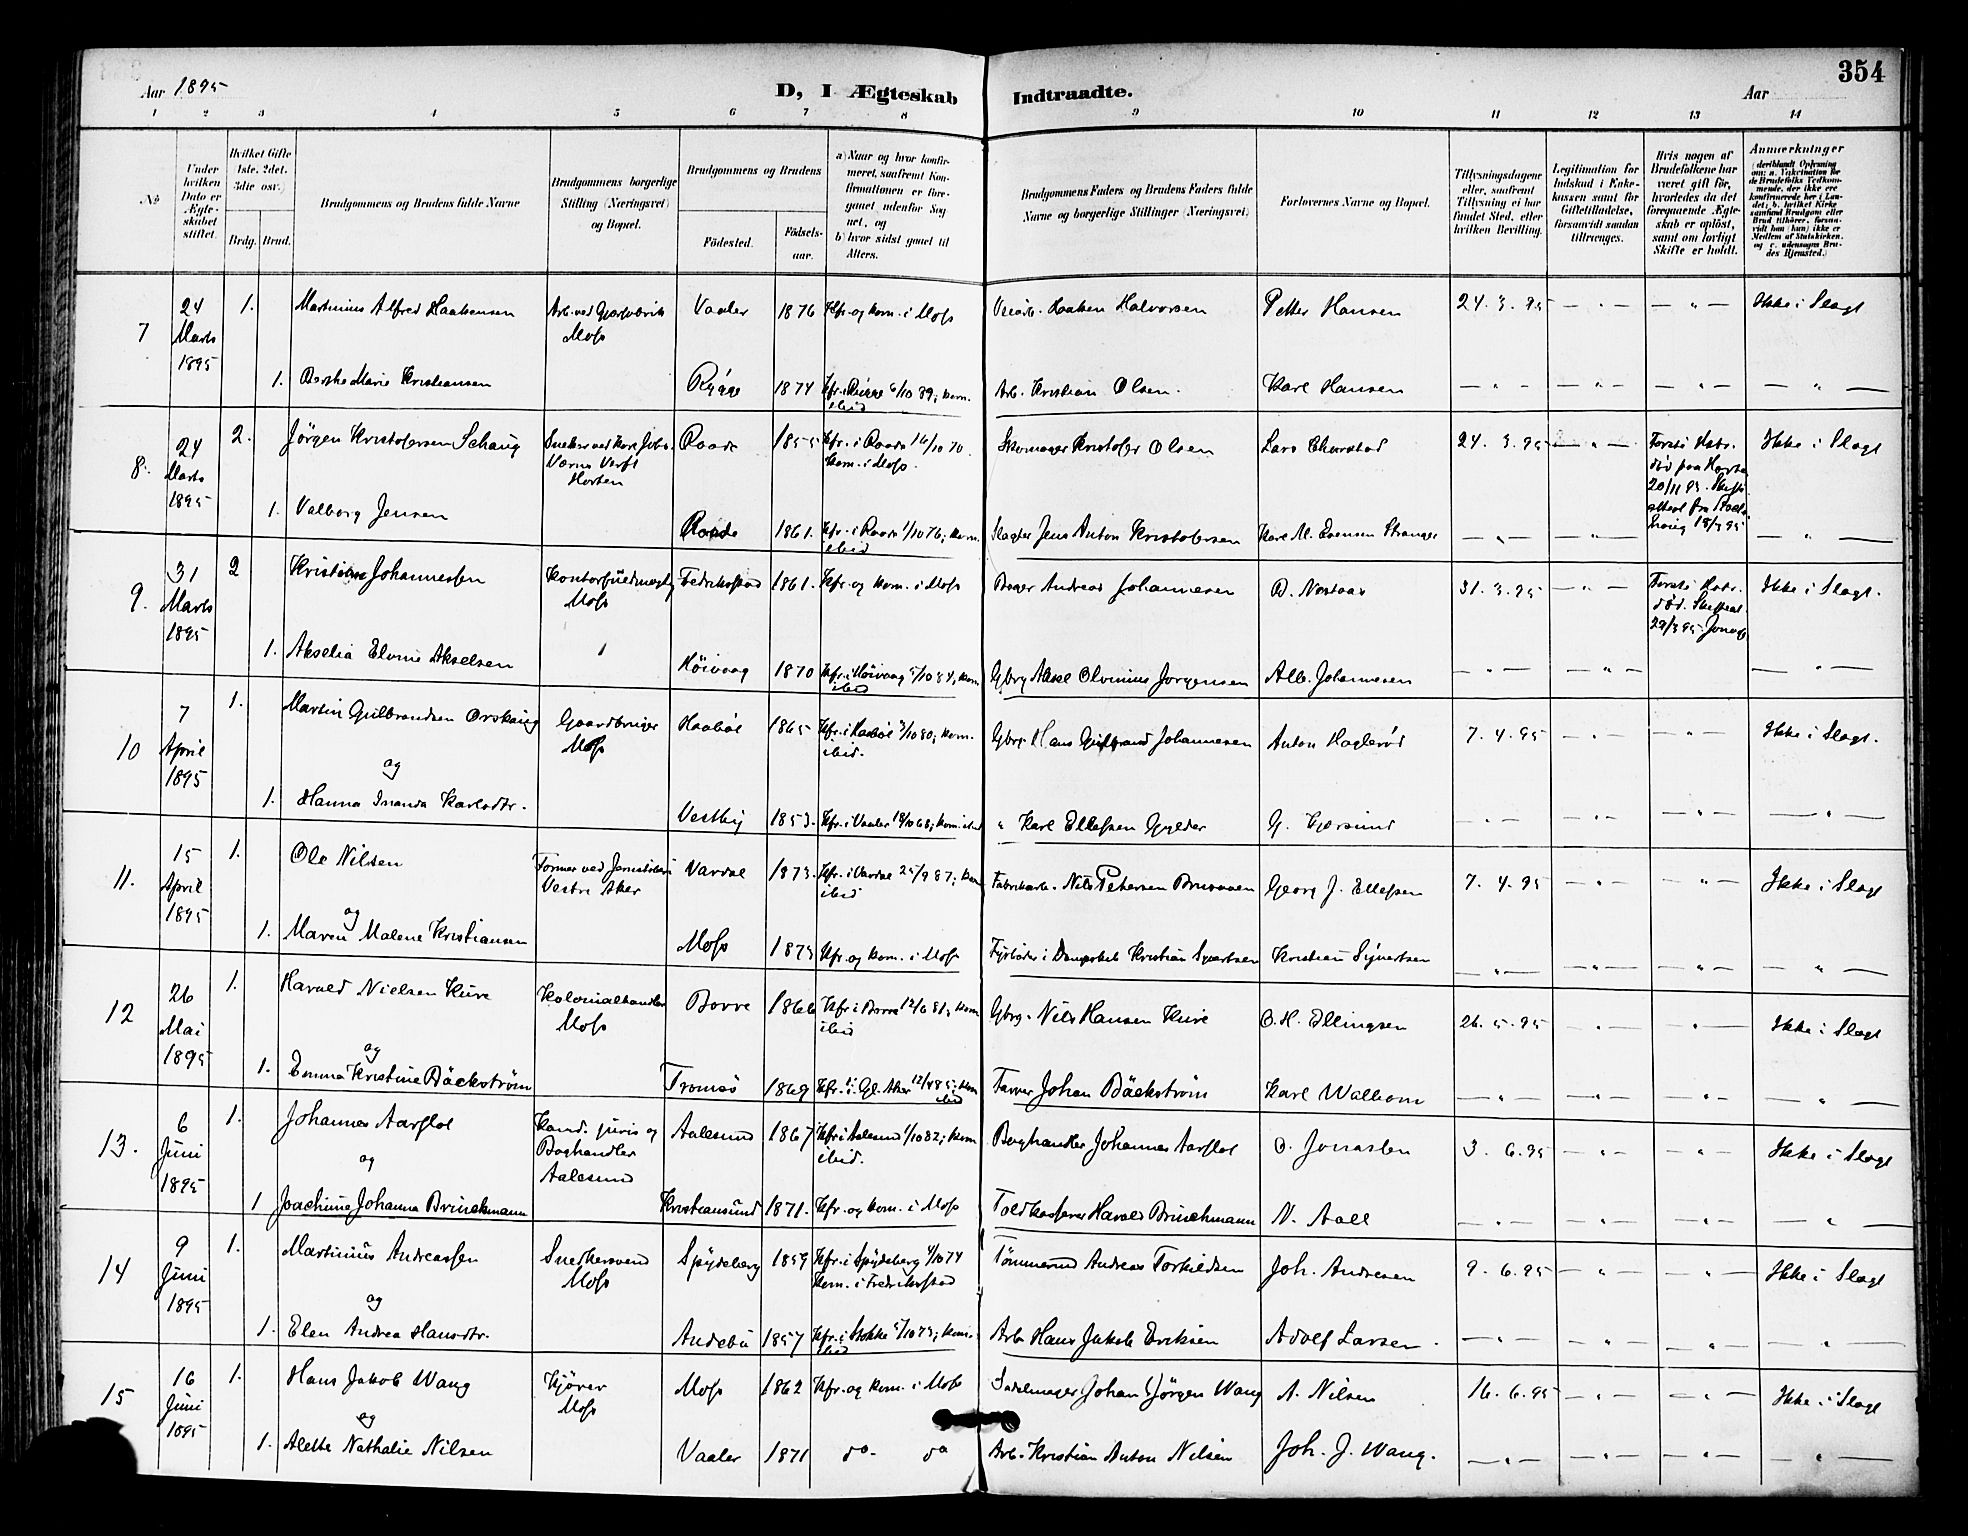 Aar 1895
D, I Ægteskab Indtraadte.
Aar
354
1 2 3 4 5 6 7 8 9 10 11 12 13 14
No
Under hvilken Dato er Ægteskabet stiftet.
Hvilket Gifte 1ste. 2det. 3die osv.)
Brdg. Brud.
Brudgommens og Brudens fulde Navne
Brudgommens borgerlige Stilling (Næringsvei) og Bopæl.
Brudgommens og Brudens
Fødested.
Fødselsaar.
a) Naar og hvor konfirmeret, saafremt Konfirmationen er foregaaet udenfor Sognet, og
b) hvor sidst gaaet til Alters.
Brudgommens Faders og Brudens Faders fulde Navne og borgerlige Stillinger (Næringsvei)
Forlovernes Navne og Bopæl.
Tillysningsdagene eller, saafremt Tillysning ei har fundet Sted, efter hvilken Bevilling.
Legitimation for Indskud i Enkekassen samt for Giftetilladelse, forsaavidt saadan tiltrænges.
Hvis nogen af Brudefolkene har været gift før, hvorledes da det foregaaende Ægteskab er opløst, samt om lovligt Skifte er holdt.
Anmærkninger
7 24 Marts 1895 1. Martinius Alfred Haakensen Arb. ved Glasfabrik Moss Vaaler 1876 Kfr. og kom. i Moss Haaken Halvorsen Petter Hansen 24. 3. 95 Ikke i Slægt
1. Berthe Marie Kristiansen Rygge 1874 Kfr. i Rygge 6/10 89; kom. ibid Arb. Kristian Olsen. Karl Hansen
8. 24 Marts 1895 2. Jørgen Kristofersen Schaug Værns Verft Horten Raade 1855 Kfr. i Raade 16/10 70. kom. i Moss. Skomager Kristofer Olsen Lars 24. 3. 95 Første Hstr. død paa 20/11 93. 18/3 95 Ikke i Slægt
1. Valborg Jensen Raade 1861. Kfr. i Raade 1/10 76; kom. ibid Slagter Jens Anton Kristofersen Karl M. Evensen Stranger
9. 31 Marts 1895 2 Kristian Johannessen Kontorfuldmægtig Moss Fredrikstad 1861. Kfr. og kom. i Moss Bager Andreas Johannesen 31. 3. 95 Første Hstr. død. 29/3 95 Ikke i Slægt.
1. Akselia Elvine Akselsen Høivaag 1870 Kfr. i Høivaag 5/10 84; kom ibid Gbrg Aksel Olvinius Jørgensen Alb. Johannesen
10 7 April 1895 1. Martin Gulbrandsen Orskaug Gaardbruger Moss Haabøl 1865 Kfr. i Haabøl 3/10 80; kom. ibid. Gbrg. Hans Gulbrand Johannesen Anton Haglerød 7. 4. 95 Ikke i Slægt.
og
1. Hanna Inanda Karlsdtr. Vestby 1853. Kfr. i Vaaler 18/10 68; kom. ibid " Karl Ellefsen Gylder G. Gjersund
11. 15 April 1895 1. Ole Nilsen Former ved Jernstøberi Vestre Aker Vardal 1873. Kfr. i Vardal 25/9 87; kom ibid Fabrikarb. Nils Petersen Brusveen Georg J. Ellefsen 7. 4. 95 Ikke i Slægt
og
1. Maren Malene Kristiansen Moss 1873 Kfr. og kom. i Moss Fyrbøder i Dampskib Kristian Syvertsen Kristian Syvertsen
12 26 Mai 1895 1. Harald Nielsen Kure Kolonialhandler Moss Borre 1866 Kfr. i Borre 12/6 81; kom ibid Gbrg. Nils Hansen Kure O. H. Ellingsen 26. 5. 95 Ikke i Slægt
og
1. Emma Kristine Bäckström Tromsø 1869 Kfr. i Gl. Aker 12/4 85; kom ibid Farver Johan Bäckström Karl Walbom
13. 6 Juni 1895 1. Johannes Aarflot Kand. juris og Boghandler Aalesund Aalesund 1867 Kfr. i Aalesund 1/10 82; kom ibid. Boghandler Johannes Aarflot O. Jonassen 3. 6. 95 Ikke i Slægt
og
1 Joachime Johanna Brinchmann Kristiansund 1871. Kfr. og kom. i Moss Toldkasserer Harald Brinchmann N. Aall
14 9 Juni 1895 1. Martinius Andreassen Snekkersvend Moss Spydeberg 1859 Kfr. i Spydeberg 4/10 74 kom. i Fredrikstad Tømmermd Andreas Torkildsen Joh. Andresen 9. 6. 95 Ikke i Slægt
og
1. Elen Andrea Hansdtr. Andebu 1857 Kfr. i Stokke 5/10 73; kom. ibid Arb Hans Jakob Eriksen Adolf Larsen
15 16 Juni 1895 1. Hans Jakob Wang Kjører Moss Moss 1862 Kfr. og kom. i Moss Sadelmager Johan Jørgen Wang A. Nilsen 16. 6. 95 Ikke i Slægt
og
1. Alette Nathalie Nilsen Vaaler 1871 do. do Arb. Kristian Anton Nilsen Joh. J. Wang.